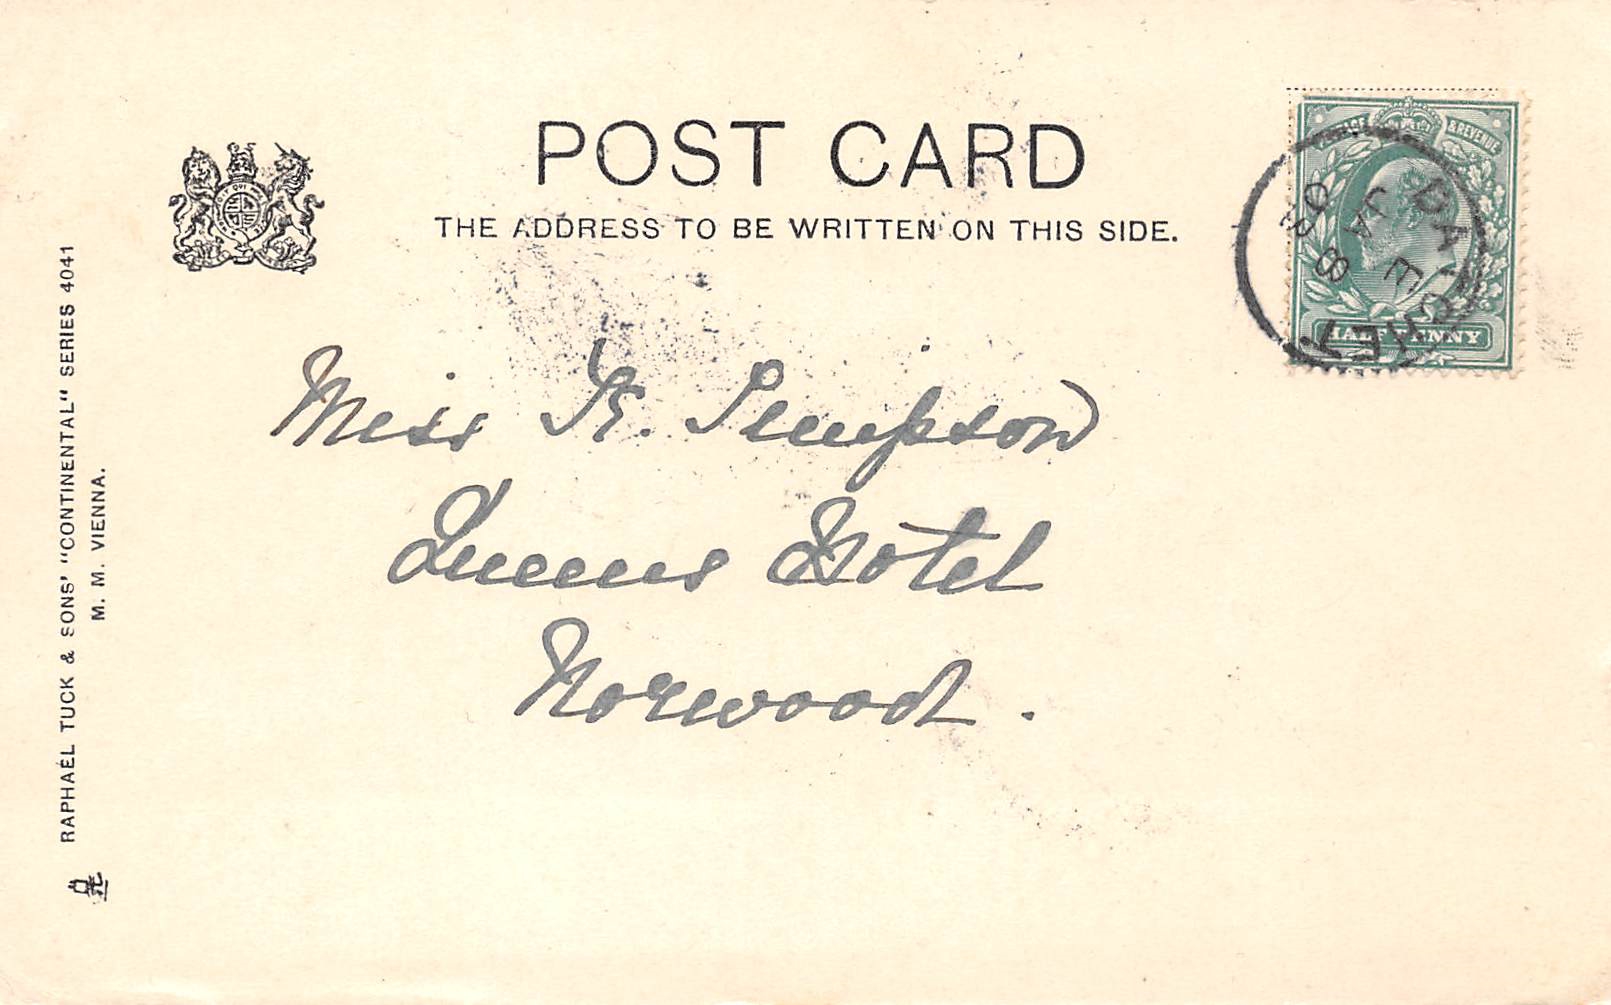 POST CARD
THE ADDRESS TO BE WRITTEN ON THIS SIDE.
POSTAGE & REVENUE
HALFPENNY
DATCHET
E
JA 8
Miss K. Simpson
Queens Hotel
Norwood.
RAPHAEL TUCK & SONS' "CONTINENTAL" SERIES 4041
M. M. VIENNA.